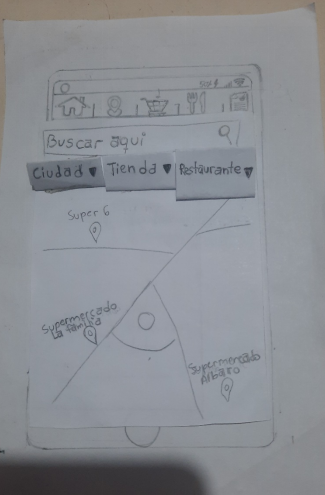 Buscar aqui
Ciudad ▼ Tienda ▼ Restaurante ▼
Super 6
Supermercado
La familia
Supermercado
Albaro